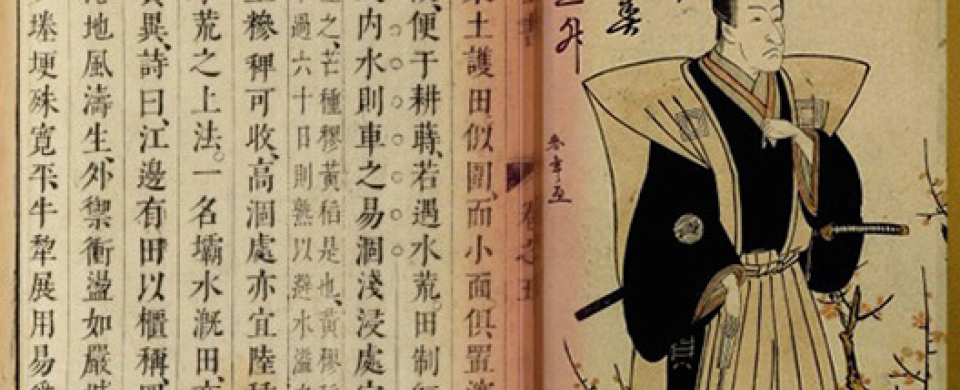 土護田似圍、而小面俱置
便于耕蒔、若遇水荒、田制
內水則車之易涸淺浸處
之、芒種穋黃稻是也、黃穋
過六十日則熟以避水溢
糝稗可收、高涸處亦宜陸
荒之上法。一名壩水溉田、
異、詩曰、江邊有田以櫃稱、
地風濤生、外禦衝盪如嚴
塍埂殊寬平、牛犁展用易
卷之五
春章画